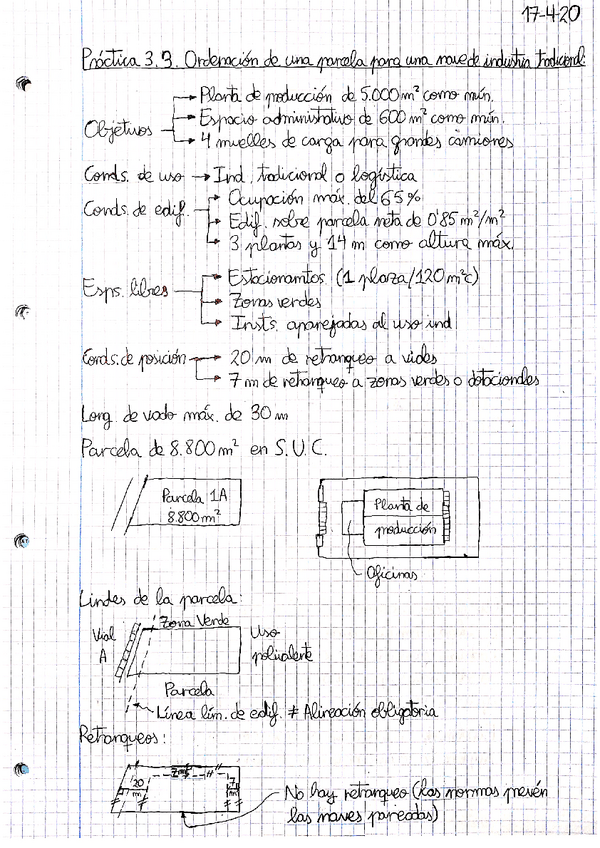 17-4-20
Práctica 3.3. Ordenación de una parcela para una nave de industria tradicional.
Objetivos
Planta de producción de 5.000 m² como mín.
Espacio administrativo de 600 m² como mín.
4 muelles de carga para grandes camiones
Conds. de uso → Ind. tradicional o logística
Conds. de edif.
Ocupación máx. del 65%
Edif. sobre parcela neta de 0'85 m²/m²
3 plantas y 14 m como altura máx.
Esps. libres
Estacionamtos (1 plaza/120 m²c)
Zonas verdes
Insts. aparejadas al uso ind
Conds. de posición
20 m de retranqueo a viales
7 m de retranqueo a zonas verdes o dotacionales
Long. de vado máx. de 30 m
Parcela de 8.800 m² en S.U.C.
Parcela 1A
8.800 m²
Planta de
producción
Oficinas
Lindes de la parcela:
Vial
A
Zona Verde
Uso
polivalente
Parcela
Línea lím. de edif. ≠ Alineación obligatoria
Retranqueos:
20
m
7m
7
m
No hay retranqueo (Las normas prevén
las naves pareadas)